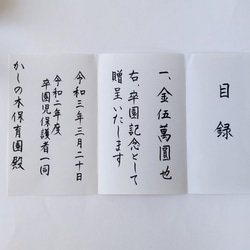 目録
一、金伍萬圓也
右、卒園記念として
贈呈いたします
令和三年三月二十日
令和二年度
卒園児保護者一同
かしの木保育園殿